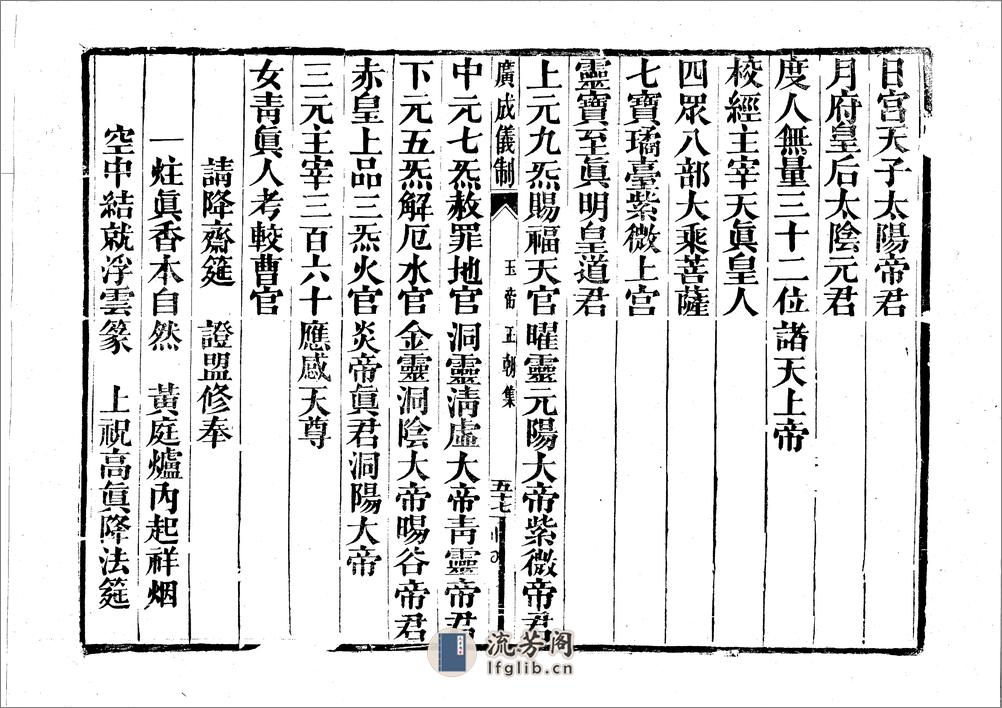 日宮天子太陽帝君
月府皇后太陰元君
度人無量三十二位諸天上帝
校經主宰天眞皇人
四眾八部大乘菩薩
七寶璚臺紫微上宮
靈寶至眞明皇道君
上元九炁賜福天官　曜靈元陽大帝紫微帝君
廣成儀制
玉帝正朝集
五十七
中元七炁赦罪地官　洞靈清虛大帝青靈帝君
下元五炁解厄水官　金靈洞陰大帝暘谷帝君
赤皇上品三炁火官　炎帝眞君洞陽大帝
三元主宰三百六十　應感天尊
女青眞人考較曹官
請降齋筵　證盟修奉
一炷眞香本自然　黃庭爐內起祥烟
空中結就浮雲篆　上祝高眞降法筵
流芳阁
lfglib.cn